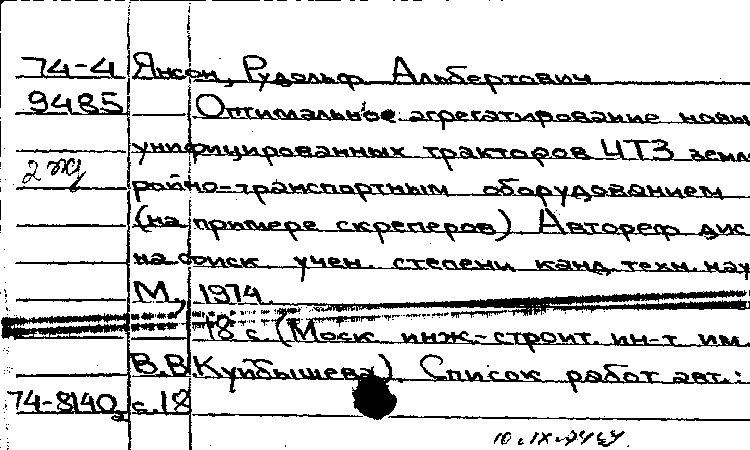 74-4 Янсон, Рудольф Альбертович
9485 Оптимальное агрегатирование новы
унифицированных тракторов ЧТЗ земле
ройно-транспортным оборудованием
(на примере скреперов) Автореф дис
на соиск учен. степени канд. техн. нау
М., 1974.
18 с. (Моск инж.-строит. ин-т им.
В.В. Куйбышева). Список работ авт.:
74-8140 с. 18